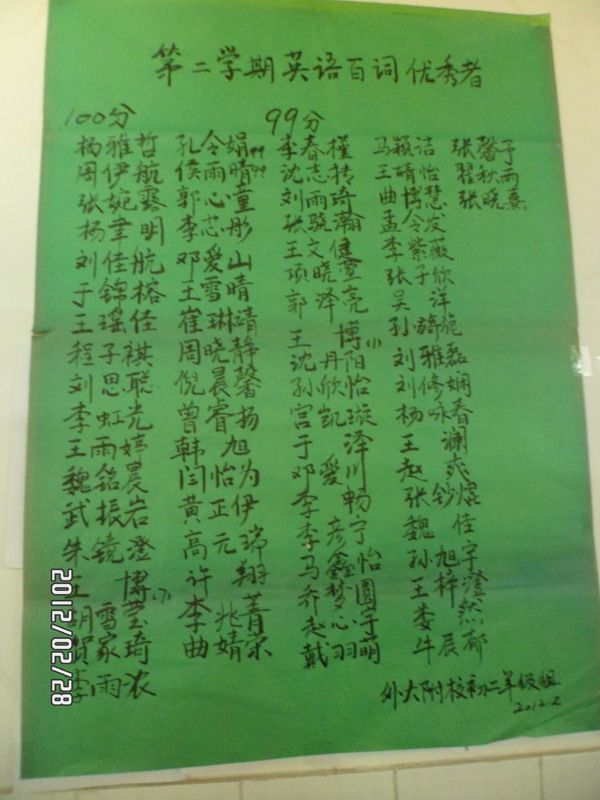 第二学期英语百词优秀者
100分
杨雅哲
周伊航
张婉露
杨聿明
刘佳航
于锦榕
王瑶佳
程子祺
刘思聪
李虹光
王雨婷
魏铭晨
武振岩
朱镜澄
王博(7)
胡雪莹
贺家琦
李雨浓
孔令娟
侯雨晴
郭心童
李志彤
邓爱山
王雪晴
崔琳靖
周晓静
倪晨馨
曾睿扬
韩旭
闫怡为
黄正伊
高元瑞
许翔
李兆菁
曲婧荣
99分
李春槿
沈志
刘雨琦
张骁瀚
王文健
项晓萱
郭泽亮
王博(1)
沈丹阳
孙欣怡
宫凯璇
于泽
邓爱川
李畅
李彦宁
马鑫怡
乔梦圆
赵心宇
戴羽萌
马颖洁
王晴怡
曲博慧
孟令发
李紫薇
张子欣
吴洋
孙旖旎
刘雅磊
刘修娴
杨咏春
王澜
赵爽
张钞焜
魏佳
孙旭宇
王梓澄
娄然
牛辰郁
张馨予
翟秋雨
张晓熹
外大附校初二年级组
2012.2
2012/02/28